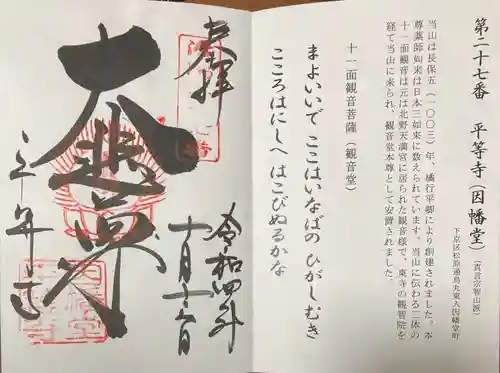 第二十七番 平等寺（因幡堂）（真言宗智山派）
下京区松原通烏丸東入因幡堂町
当山は長保五（一〇〇三）年、橘行平卿により創建されました。本
尊薬師如来は日本三如来に数えられています。当山に伝わる二体の
十一面観音は元は北野天満宮に居られた観音様で、東寺の観智院を
経て当山に来られ、観音堂本尊として安置されました。
十一面観音菩薩（観音堂）
まよいいで ここはいなばの ひがしむき
こころはにしへ はこびぬるかな
奉拝
大悲尊
平等寺
令和四年
十月十六日